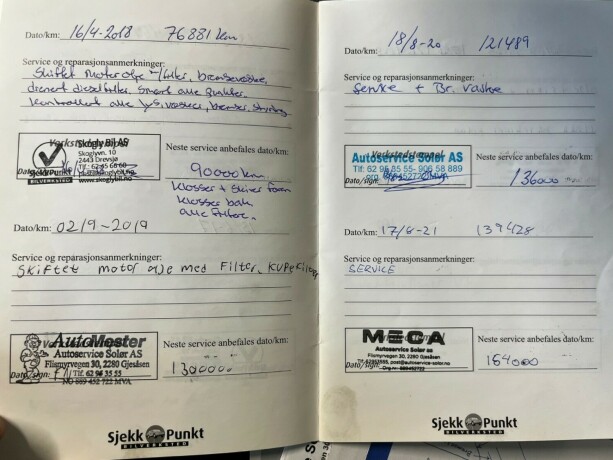 Dato/km: 16/4-2018 76881 km
Service og reparasjonsanmerkninger:
Skiftet Motorolje m/filter, bremsevæske,
drenert dieselfilter, smurt alle punkter.
kontrollert alle lys, væsker, bremser, styring
Verkstedstempel
Skogly Bil AS
Skoglyvn. 10
2443 Drevsjø
Tlf.: 62 45
www.skoglybil.no
Dato/sign:
Sjekk Punkt
BILVERKSTED
Neste service anbefales dato/km:
90000 km
klosser + skiver foran
klosser bak
alle filter.
Dato/km: 02/9-2019
Service og reparasjonsanmerkninger:
SKiftet motor olje med Filter, KUPeFilter
AutoMester
Autoservice Solør AS
Flismyrvegen 30, 2280 Gjesåsen
Dato/sign: Tlf. 62 95 35 55
NO 889 452 722 MVA
Neste service anbefales dato/km:
Sjekk Punkt
BILVERKSTED
Dato/km: 18/8-20 121489
Service og reparasjonsanmerkninger:
Service + Br. væske
Verkstedstempel
Autoservice Solør AS
Tlf: 62 95 85 55- 906 58 889
Dato/sign:
Neste service anbefales dato/km:
136000
Dato/km: 17/8-21 139428
Service og reparasjonsanmerkninger:
SERVICE
MECA
Autoservice Solør AS
Flismyrvegen 30, 2280 Gjesåsen
Dato/sign:
Neste service anbefales dato/km:
164000
Sjekk Punkt
BILVERKSTED